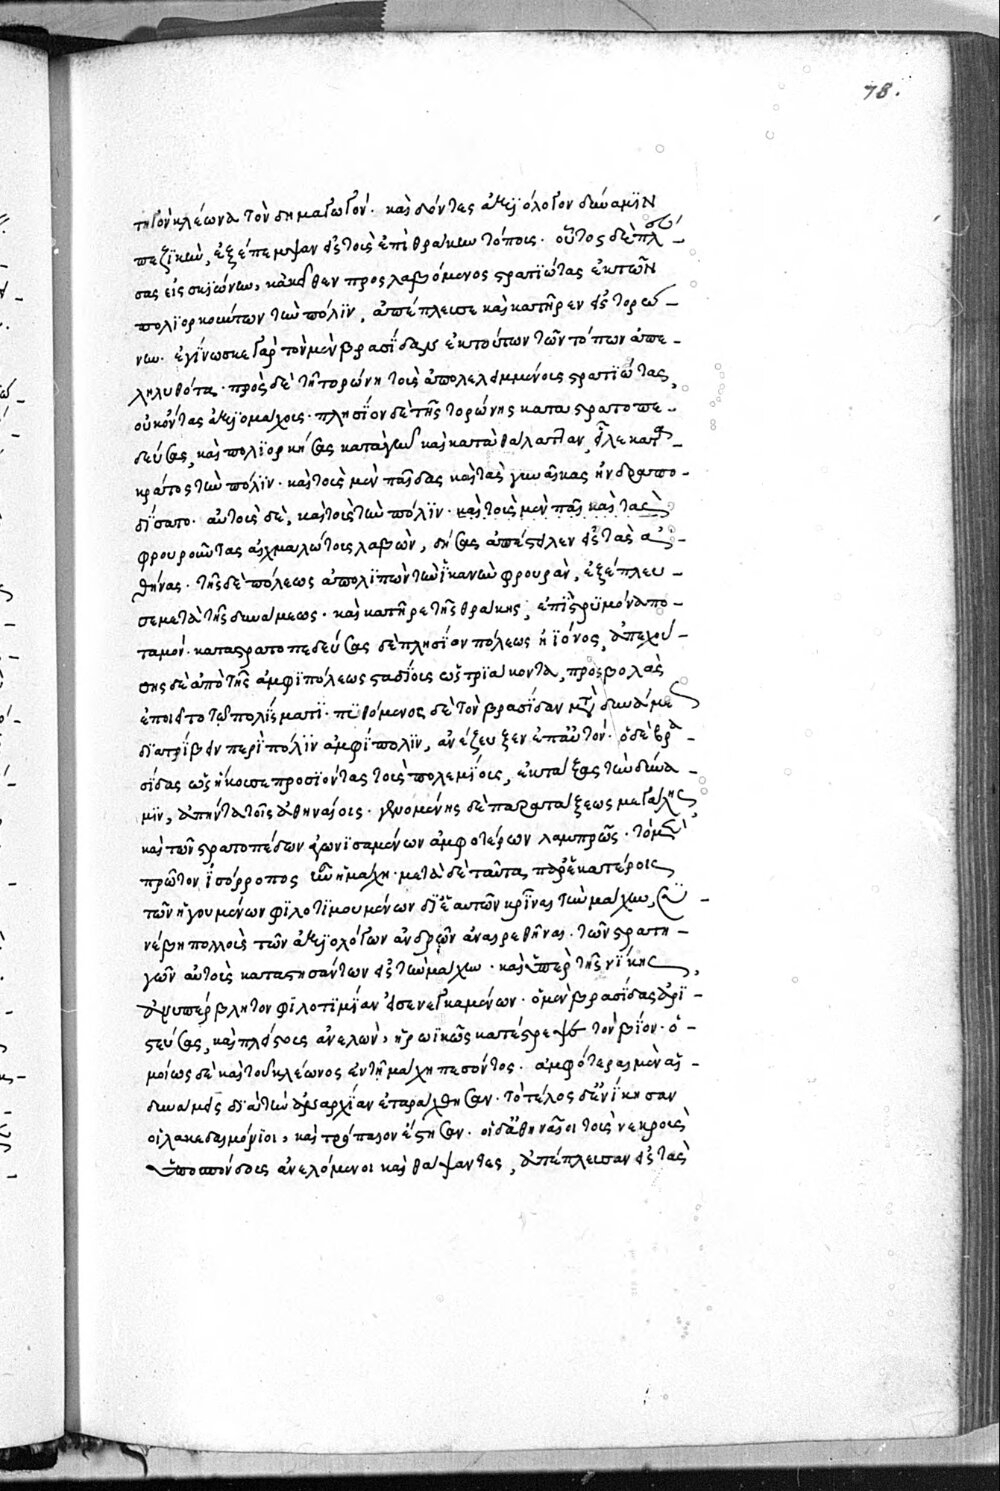 78.
τηγὸν κλέωνα τὸν δημαγωγόν. καὶ δόντες ἀξιόλογον δύναμιν
πεζικὴν, ἐξέπεμψαν εἰς τοὺς ἐπὶ θράκην τόπους. οὗτος δὲ πλεύ-
σας εἰς σκιώνην, κἀκεῖθεν προσλαβόμενος στρατιώτας ἐκ τῶν
πολιορκούντων τὴν πόλιν, ἀπέπλευσε καὶ κατῆρεν εἰς τορώ-
νην. ἐγίνωσκε γὰρ τὸν μὲν βρασίδαν ἐκ τούτων τῶν τόπων ἀπε-
ληλυθότα. πρὸς δὲ τῇ τορώνῃ τοὺς ἀπολελειμμένους στρατιώτας,
οὐκ ὄντας ἀξιομάχους. πλησίον δὲ τῆς τορώνης καταστρατοπε-
δεύσας, καὶ πολιορκήσας κατὰ γῆν καὶ κατὰ θάλατταν, εἷλε κατὰ
κράτος τὴν πόλιν. καὶ τοὺς μὲν παῖδας καὶ τὰς γυναῖκας ἠνδραπο-
δίσατο. αὐτοὺς δὲ, καὶ τοὺς τὴν πόλιν. καὶ τοὺς μὲν παῖ καὶ τὰς
φρουροῦντας αἰχμαλώτους λαβὼν, δήσας ἀπέστειλεν εἰς τὰς ἀ-
θήνας. τῆς δὲ πόλεως ἀπολιπὼν τὴν ἱκανὴν φρουρὰν, ἐξέπλευ-
σε μετὰ τῆς δυνάμεως. καὶ κατῆρε τῆς θράκης, ἐπὶ στρυμόνα πο-
ταμόν. καταστρατοπεδεύσας δὲ πλησίον πόλεως ἠϊόνος, ἀπεχού-
σης δὲ ἀπὸ τῆς ἀμφιπόλεως σταδίους ὡς τριάκοντα, προσβολὰς
ἐποιεῖτο τῷ πολίσματι. πυθόμενος δὲ τὸν βρασίδαν μετὰ δυνάμε
διατρίβειν περὶ πόλιν ἀμφίπολιν, ἀνέζευξεν ἐπ αὐτόν. ὁ δὲ βρα-
σίδας ὡς ἤκουσε προσιόντας τοὺς πολεμίους, ἐκτάξας τὴν δύνα
μιν, ἀπήντα τοῖς ἀθηναίοις. γενομένης δὲ παρατάξεως μεγάλης,
καὶ τῶν στρατοπέδων ἀγωνισαμένων ἀμφοτέρων λαμπρῶς. τὸ μὲν
πρῶτον ἰσόρροπος ἦν ἡ μάχη. μετὰ δὲ ταῦτα παρ ἑκατέροις
τῶν ἡγουμένων φιλοτιμουμένων δι ἑαυτῶν κρῖναι τὴν μάχην, συ-
νέβη πολλοὺς τῶν ἀξιολόγων ἀνδρῶν ἀναιρεθῆναι. τῶν στρατη-
γῶν αὐτοὺς καταστησάντων εἰς τὴν μάχην. καὶ ὑπὲρ τῆς νίκης,
ἀνυπέρβλητον φιλοτιμίαν εἰσενεγκαμένων. ὁ μὲν βρασίδας ἀρι-
στεύσας, καὶ πλείστους ἀνελὼν, ἡρωϊκῶς κατέστρεψε τὸν βίον. ὁ-
μοίως δὲ καὶ τοῦ κλέωνος ἐν τῇ μάχῃ πεσόντος. ἀμφότεραι μὲν αἱ-
δυνάμεις διὰ τὴν ἀναρχίαν ἐταράχθησαν. τὸ τέλος δ ἐνίκησαν
οἱ λακεδαιμόνιοι, καὶ τρόπαιον ἔστησαν. οἱ δ ἀθηναῖοι τοὺς νεκροὺς
ὑποσπόνδους ἀνελόμενοι καὶ θάψαντες, ἀπέπλευσαν εἰς τὰς